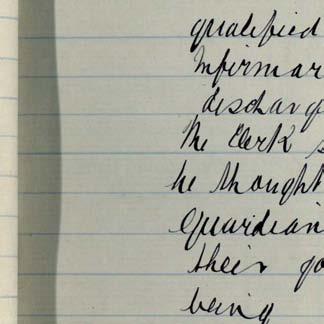 qualified
Infirmar
discharg
The Clerk s
he thought
Guardian
their go
being